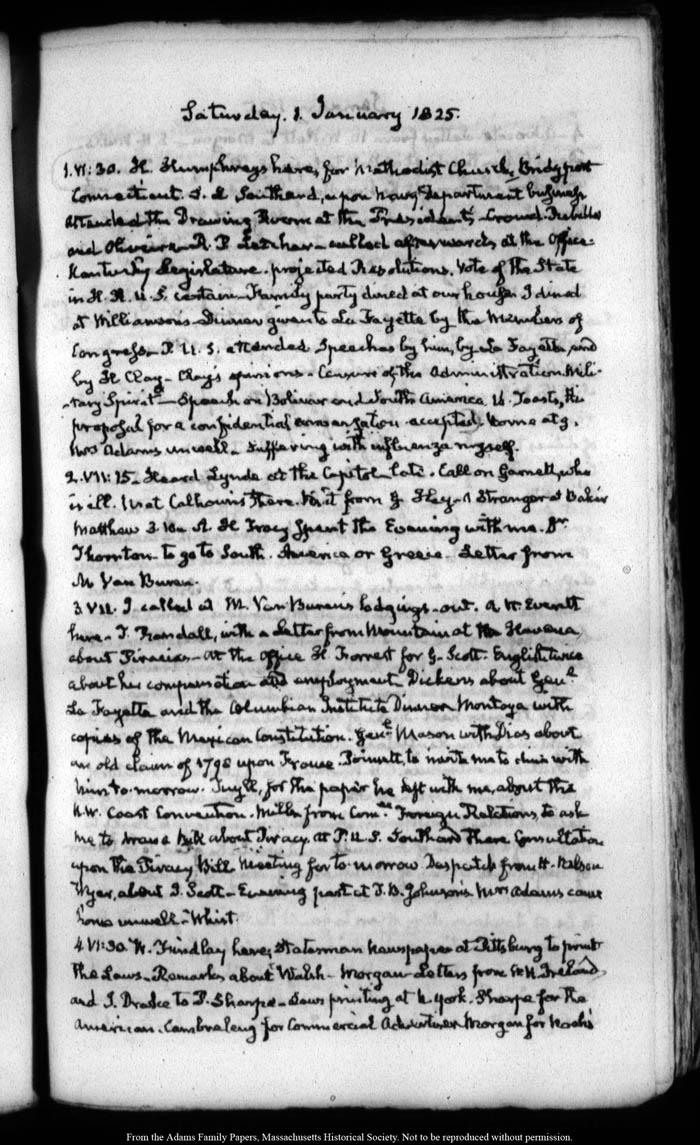 Saturday. 1. January 1825.
1. VI:30. H. Humphreys here, for Methodist Church, Bridgport
Connecticut. S. L Southard, upon Navy Department business
Attended the Drawing Room at the Presidents - Crowd. Rebello
and Oliveira. R. P. Letcher - called afterwards at the Office -
Kentucky Legislature. projected Resolutions. Vote of the State
in H. R. U.S. certain - Family party dined at our house. I dined
at Williamson's - Dinner given to La Fayette by the Members of
Congress - P. U. S. attended Speeches by him, by La Fayette, and
by H Clay - Clay's opinions - Censure of the Administration. Mili-
-tary Spirit - Speech on Bolivar and South America. 16. Toasts, His
proposal for a confidential conversation accepted. Home at 9.
Mrs Adams unwell - suffering with influenza myself.
2. VII:15 - Heard Lynde at the Capitol - late. Call on Garnett, who
is ill. Met Calhoun there. Visit from G Hay - A Stranger at Baker
Matthew 3. 10 - A. H Tracy spent the Evening with me. Dr.
Thornton to go to South. America or Greece - Letter from
M Van Buren.
3 VII. I called at M. Van Buren's lodgings - out. A H. Everett
here - T. Randall, with a Letter from Mountain at the Havana,
about Piracies - At the Office H. Forrest for G. Scott. English twice
about his compensation and employment Dickens about Genl.
La Fayette and the Columbian Institute Dinner Montoya with
copies of the Mexican Constitution. Genl. Mason with Dias about
an old claim of 1798 upon France. Poinsett, to invite me to dine with
him to-morrow. Tuyll, for the paper he left with me, about the
N.W. Coast Convention. Miller from Comee. Foreign Relations, to ask
me to draw a Bill about Piracy. At P. U. S. Southard there Consultation
upon the Piracy Bill Meeting for to-morrow Despatch from H. Nelson
Wyer, about I. Scott - Evening past at J. D. Johnson's Mrs Adams came
home unwell - Whist.
4. VI:30. W. Findlay here, Statesman Newspaper at Pittsburg to print
the Laws - Remarks about Walsh - Morgan - Letters from W H. Ireland
and I. Drake to P. Sharpe - Laws printing at N. York. Sharpe for the
American. Cambreleng for Commercial Advertiser. Morgan for Noah's
From the Adams Family Papers, Massachusetts Historical Society. Not to be reproduced without permission.